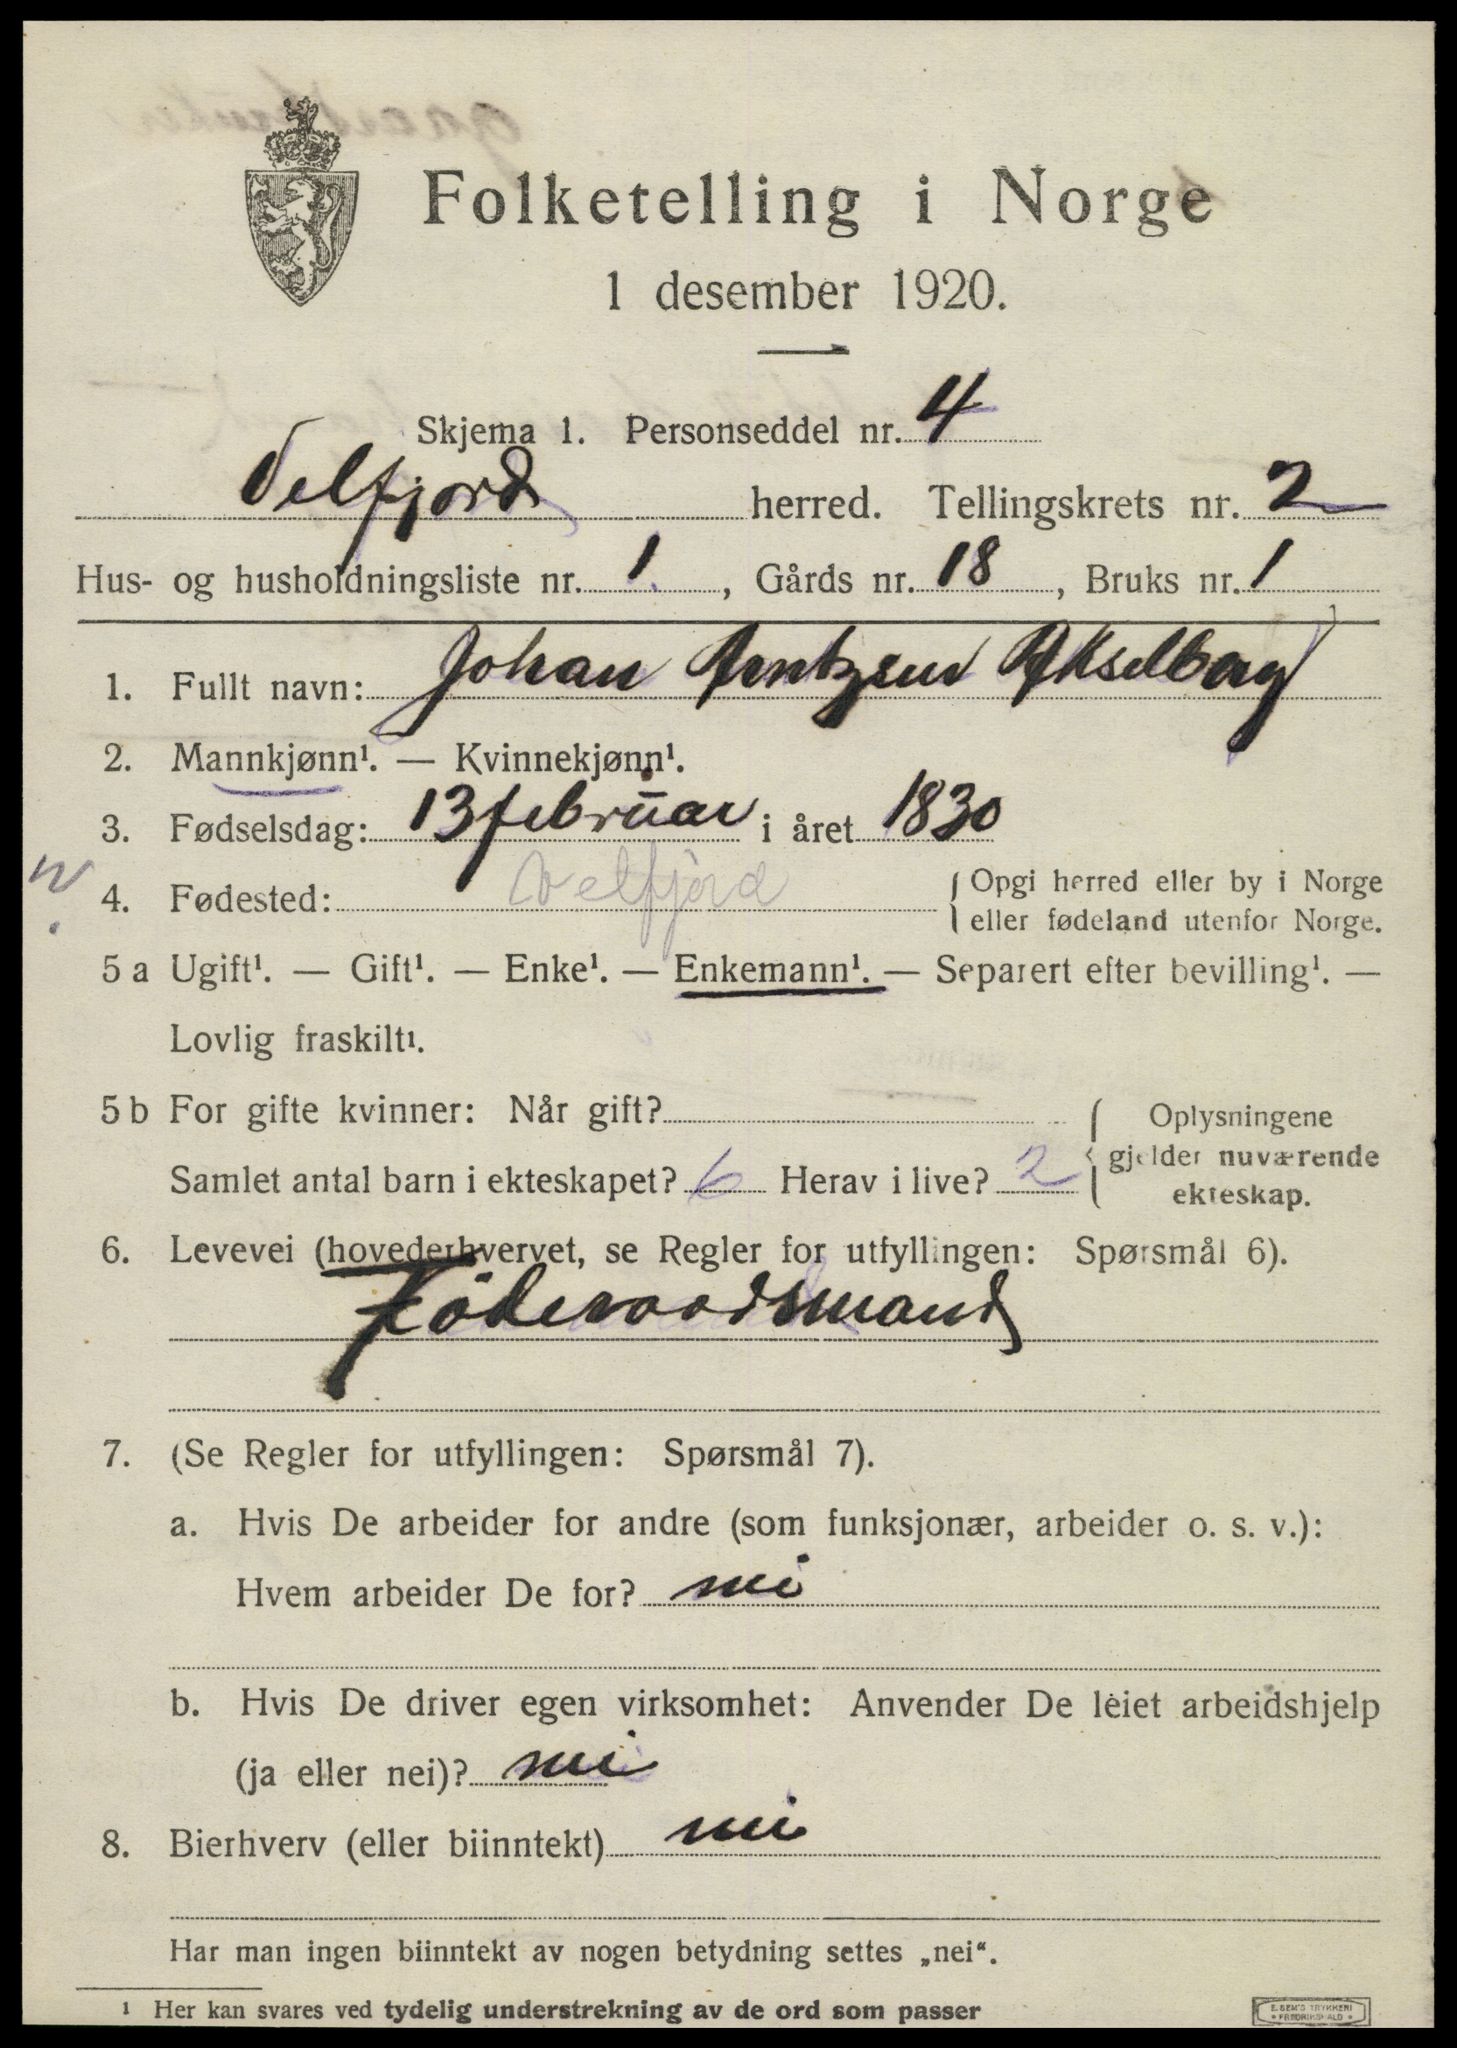 Folketelling i Norge
1 desember 1920.
Skjema 1. Personseddel nr. 4
Velfjord herred. Tellingskrets nr. 2
Hus- og husholdningsliste nr. 1, Gårds nr. 18, Bruks nr. 1
1. Fullt navn: Johan Arntzen Akselberg
2. Mannkjønn¹. — Kvinnekjønn¹.
3. Fødselsdag: 13 februar i året 1830
4. Fødested: Velfjord { Opgi herred eller by i Norge
eller fødeland utenfor Norge.
5 a Ugift¹. — Gift¹. — Enke¹. — Enkemann¹. — Separert efter bevilling¹. —
Lovlig fraskilt¹.
5 b For gifte kvinner: Når gift? { Oplysningene
gjelder nuværende
Samlet antal barn i ekteskapet? 6 Herav i live? 2
ekteskap.
6. Levevei (hovederhvervet, se Regler for utfyllingen: Spørsmål 6).
Föderaadsmand
7. (Se Regler for utfyllingen: Spørsmål 7).
a. Hvis De arbeider for andre (som funksjonær, arbeider o. s. v.):
Hvem arbeider De for? nei
b. Hvis De driver egen virksomhet: Anvender De leiet arbeidshjelp
(ja eller nei)? nei
8. Bierhverv (eller biinntekt) nei
Har man ingen biinntekt av nogen betydning settes „nei“.
¹ Her kan svares ved tydelig understrekning av de ord som passer
E. SEM'S TRYKKERI
FREDRIKSHALD